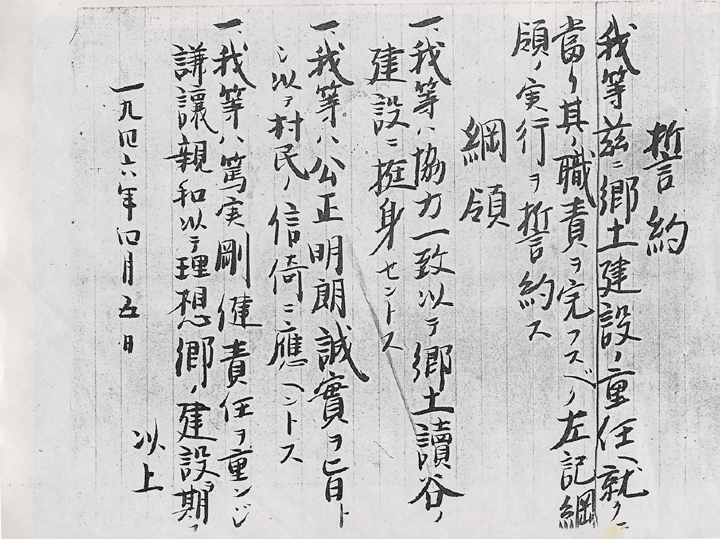 誓約
我等茲ニ郷土建設ノ重任ヘ就クニ
當リ其ノ職責ヲ完フスベク左記綱
領ノ実行ヲ誓約ス
綱領
一、我等ハ協力一致以テ郷土讀谷ノ
建設ニ挺身セントス
一、我等ハ公正明朗誠實ヲ旨ト
シ以テ村民ノ信倚ニ應ヘントス
一、我等ハ篤実剛健責任ヲ重ンジ
謙讓親和以テ理想郷ノ建設ヲ期ス
以上
一九四六年四月五日